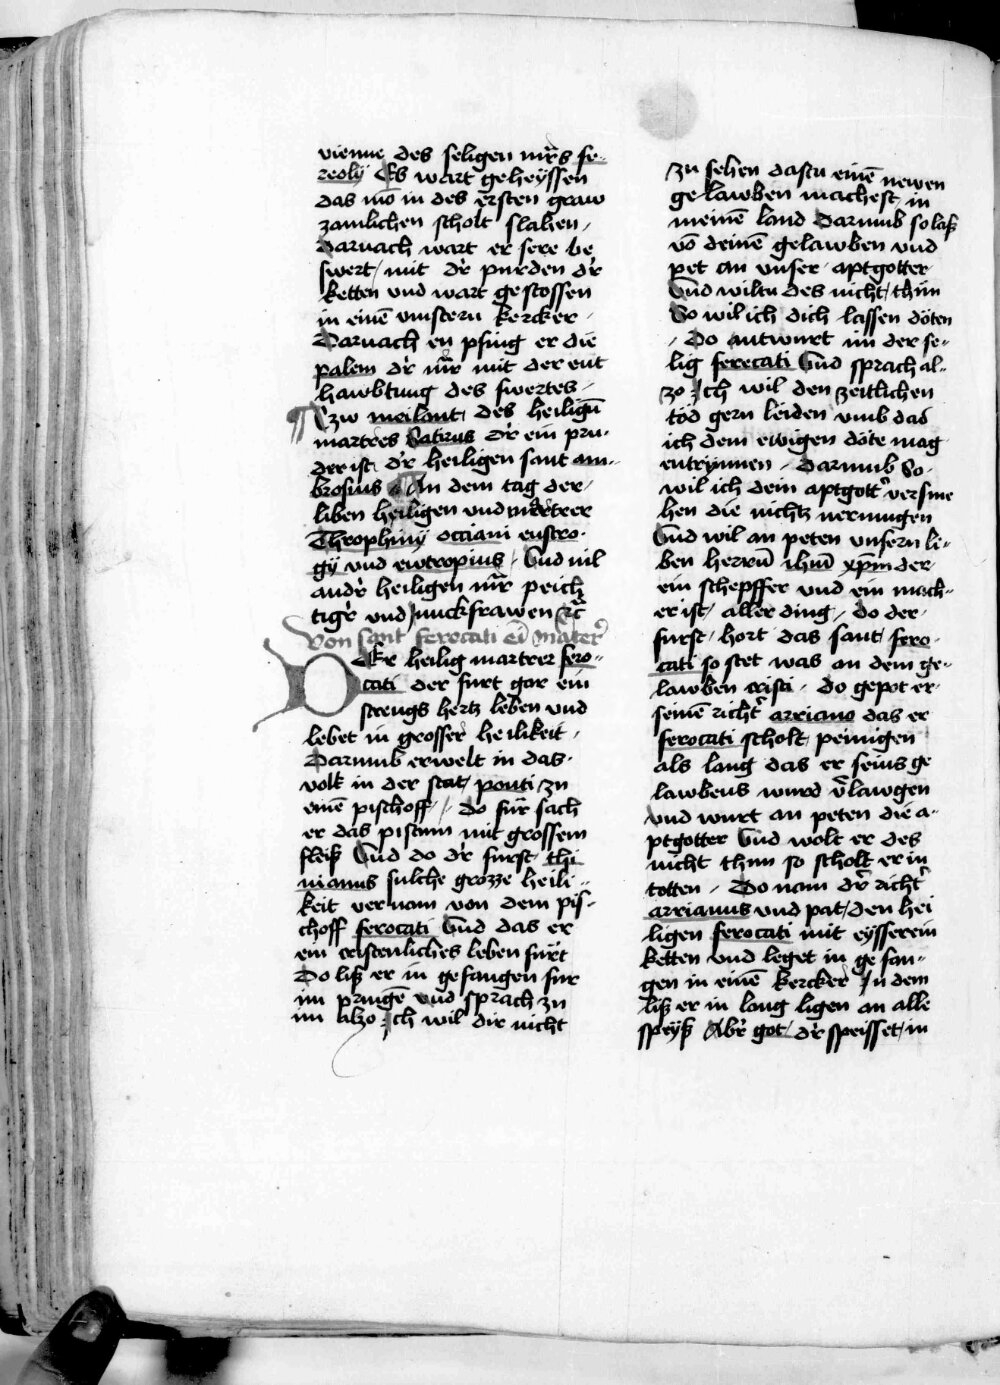 vienne des seligen mr̄s fe-
reolÿ Es wart geheÿssen
das mō in des ersten graw
zamlichen scholt slahen /
Darnach wart er sere be
swert / mit dr̕ purden dr̕
ketten vnd wart gestossen
in einē vinstern kercker /
Darnach en pfing er die
palem dr̕ mr̄ mit der ent
hawbtung des swertes /
¶ zw meilant / des heilign̄
martres Satirus dr̕ ein pru-
der ist dr̕ heiligen sant am-
brosius ¶ An dem tag der /
liben heiligen vnd mertrer
Theophiny occiani eustro-
gy vnd ewtropius / Vnd vil
andr̕ heiligen mr̄ peich
tigr̕ vnd Junckfrawen ⁊c̄
Von sant ferocati eī marter̕
DEr heilig martrer fero-
cati der furt gar ein
strengs hertz leben vnd
lebet in grosser heilikeit /
Darumb erwelt in das
volk in der stat / ponti / zu
einē pischoff / / do für sach
er das pistum mit grossem
fleiß Vnd do dr̕ furst / thi
nianus sulche grozze heili-
keit vernam von dem pis-
choff ferocati Vnd das er
ein cristenliches leben fürt
Do liß er in gefangen fur
im pringē vnd sprach zu
im Alzo Jch wil dir nicht
zu sehen dastu einē newen
gelawben machest / in
meinē land Darumb so laß
vō deinē gelawben vnd
pet an vnser aptgotter
Vnd wiltu des nicht / thun
So wil ich dich lassen döten
/ Do antwurt im der se-
lig ferecati Vnd sprach al-
zo Jch wil den zeitlichen
töd gern leiden vmb das
ich dem ewigen döte mag
entrynnen / Darumb So
wil ich dein aptgott̕ versme
hen die nichtz vermugen
Vnd wil an peten vnsern li-
ben herrn̄ ihm̄ xp̄m der /
ein schepffer vnd ein mach-
er ist / aller ding / do der /
furst / hort das sant / fero-
cati so stet was an dem ge-
lawben cristi / do gepot er
seinē richt̕ arriano das er
ferocati scholt peinigen
als lang das er seins ge
lawbens wurd v̕lawgen
vnd wurt an peten die a-
ptgotter Vnd wolt er des
nicht thun so scholt er in
totten / Do nam dr̕ richt̕
arrianus vnd pat / den hei
ligen ferocati mit eÿsserein
ketten vnd leget in gefan-
gen in einē kercker Jn dem
liß er in lang ligen an alle
speÿß Abr̕ got / dr̕ speisset / in